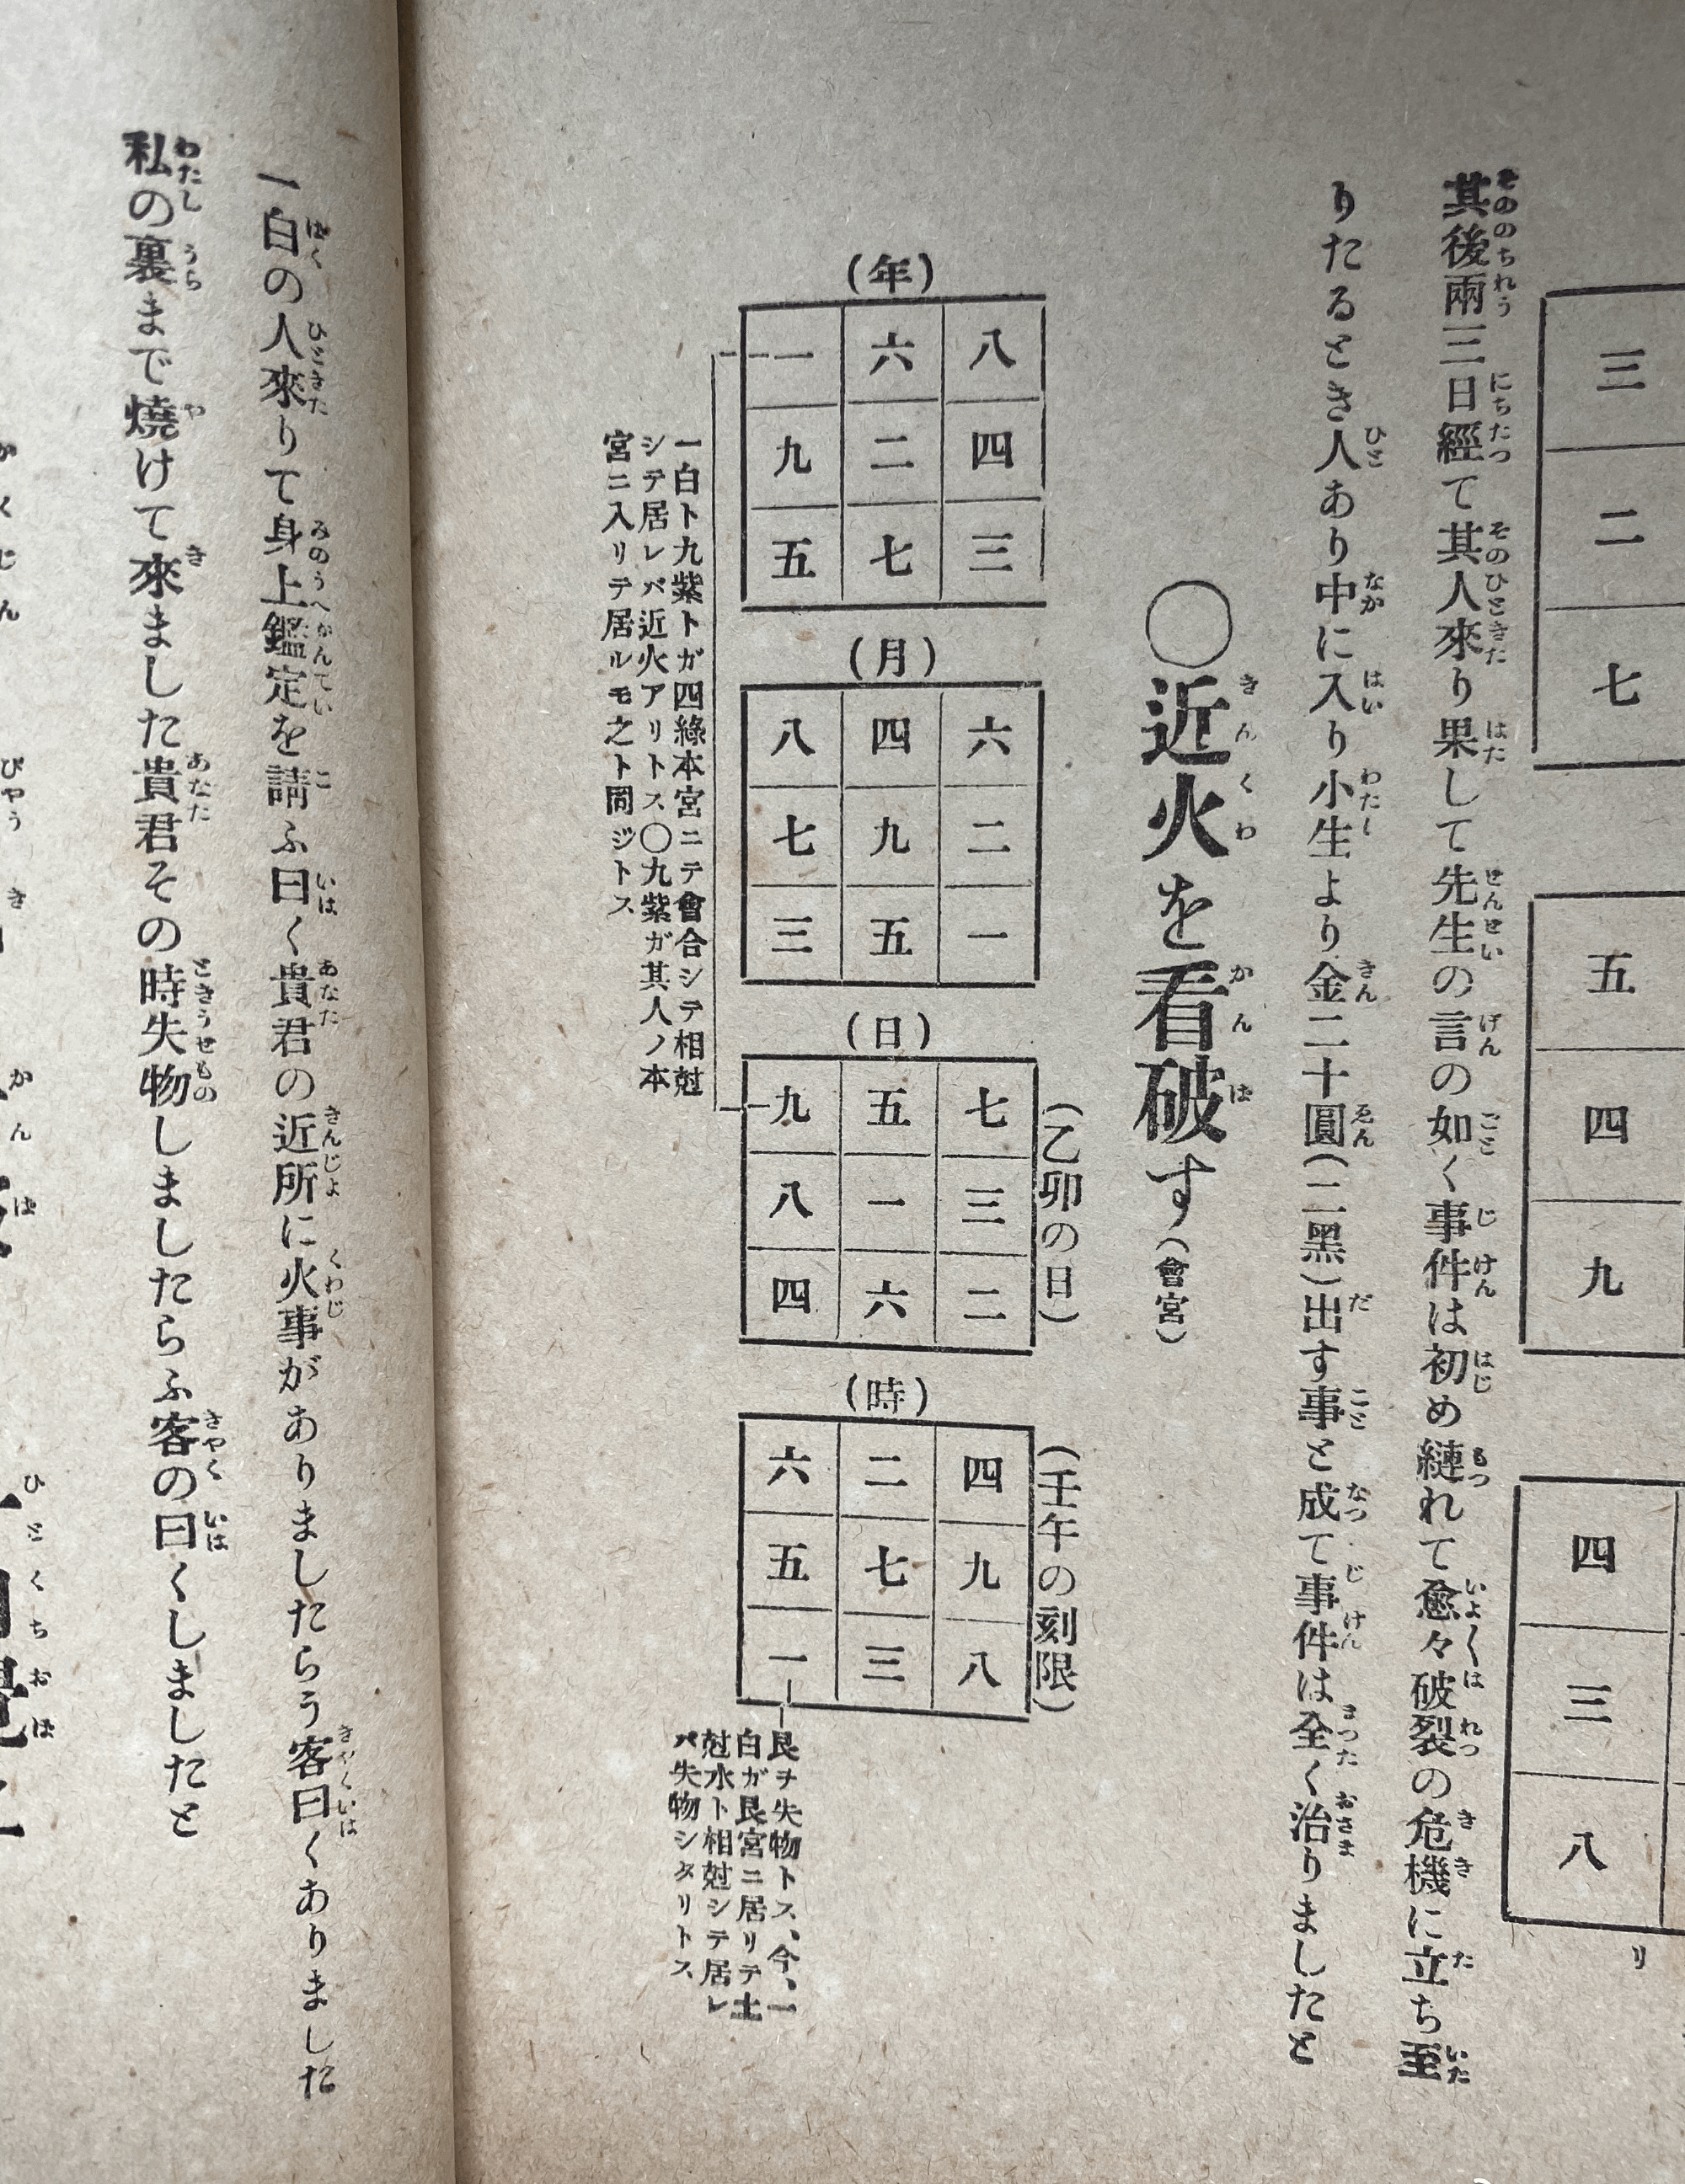 三
二
七
五
四
九
四
三
八
リ
其後兩三日經て其人來り果して先生の言の如く事件は初め縺れて愈々破裂の危機に立ち至
りたるとき人あり中に入り小生より金二十圓(二黑)出す事と成て事件は全く治りましたと
〇近火を看破す(會宮)
(年)
八 六 一
四 二 九
三 七 五
(月)
六 四 八
二 九 七
一 五 三
(日)
(乙卯の日)
七 五 九
三 一 八
二 六 四
(時)
(壬午の刻限)
四 二 六
九 七 五
八 三 一
一白ト九紫トガ四綠本宮ニテ會合シテ相尅
シテ居レバ近火アリトス〇九紫ガ其人ノ本
宮ニ入リテ居ルモ之ト同ジトス
艮ヲ失物トス、今、一
白ガ艮宮ニ居リテ土
尅水ト相尅シテ居レ
バ失物シタリトス
一白の人來りて身上鑑定を請ふ曰く貴君の近所に火事がありましたらう客曰くありました
私の裏まで燒けて來ました貴君その時失物しましたらふ客の曰くしましたと